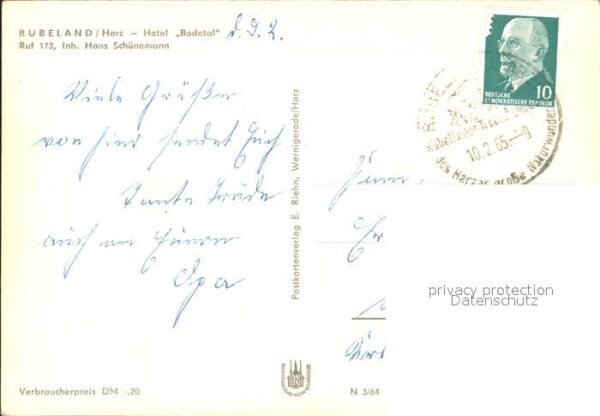 RÜBELAND/Harz – Hotel „Bodetal"
Ruf 173, Inh. Hans Schünemann
d. 9. 2.
Viele Grüße
von hier sendet Euch
Tante Trude
auch an Euren
Opa
Postkartenverlag E. Riehn, Wernigerode/Harz
10
DEUTSCHE
DEMOKRATISCHE REPUBLIK
Rübeländer Tropfstein
10.2.65.–9
des Harzes große Naturwunder
Fam.
privacy protection
Datenschutz
Verbraucherpreis DM -,20
N 3/64